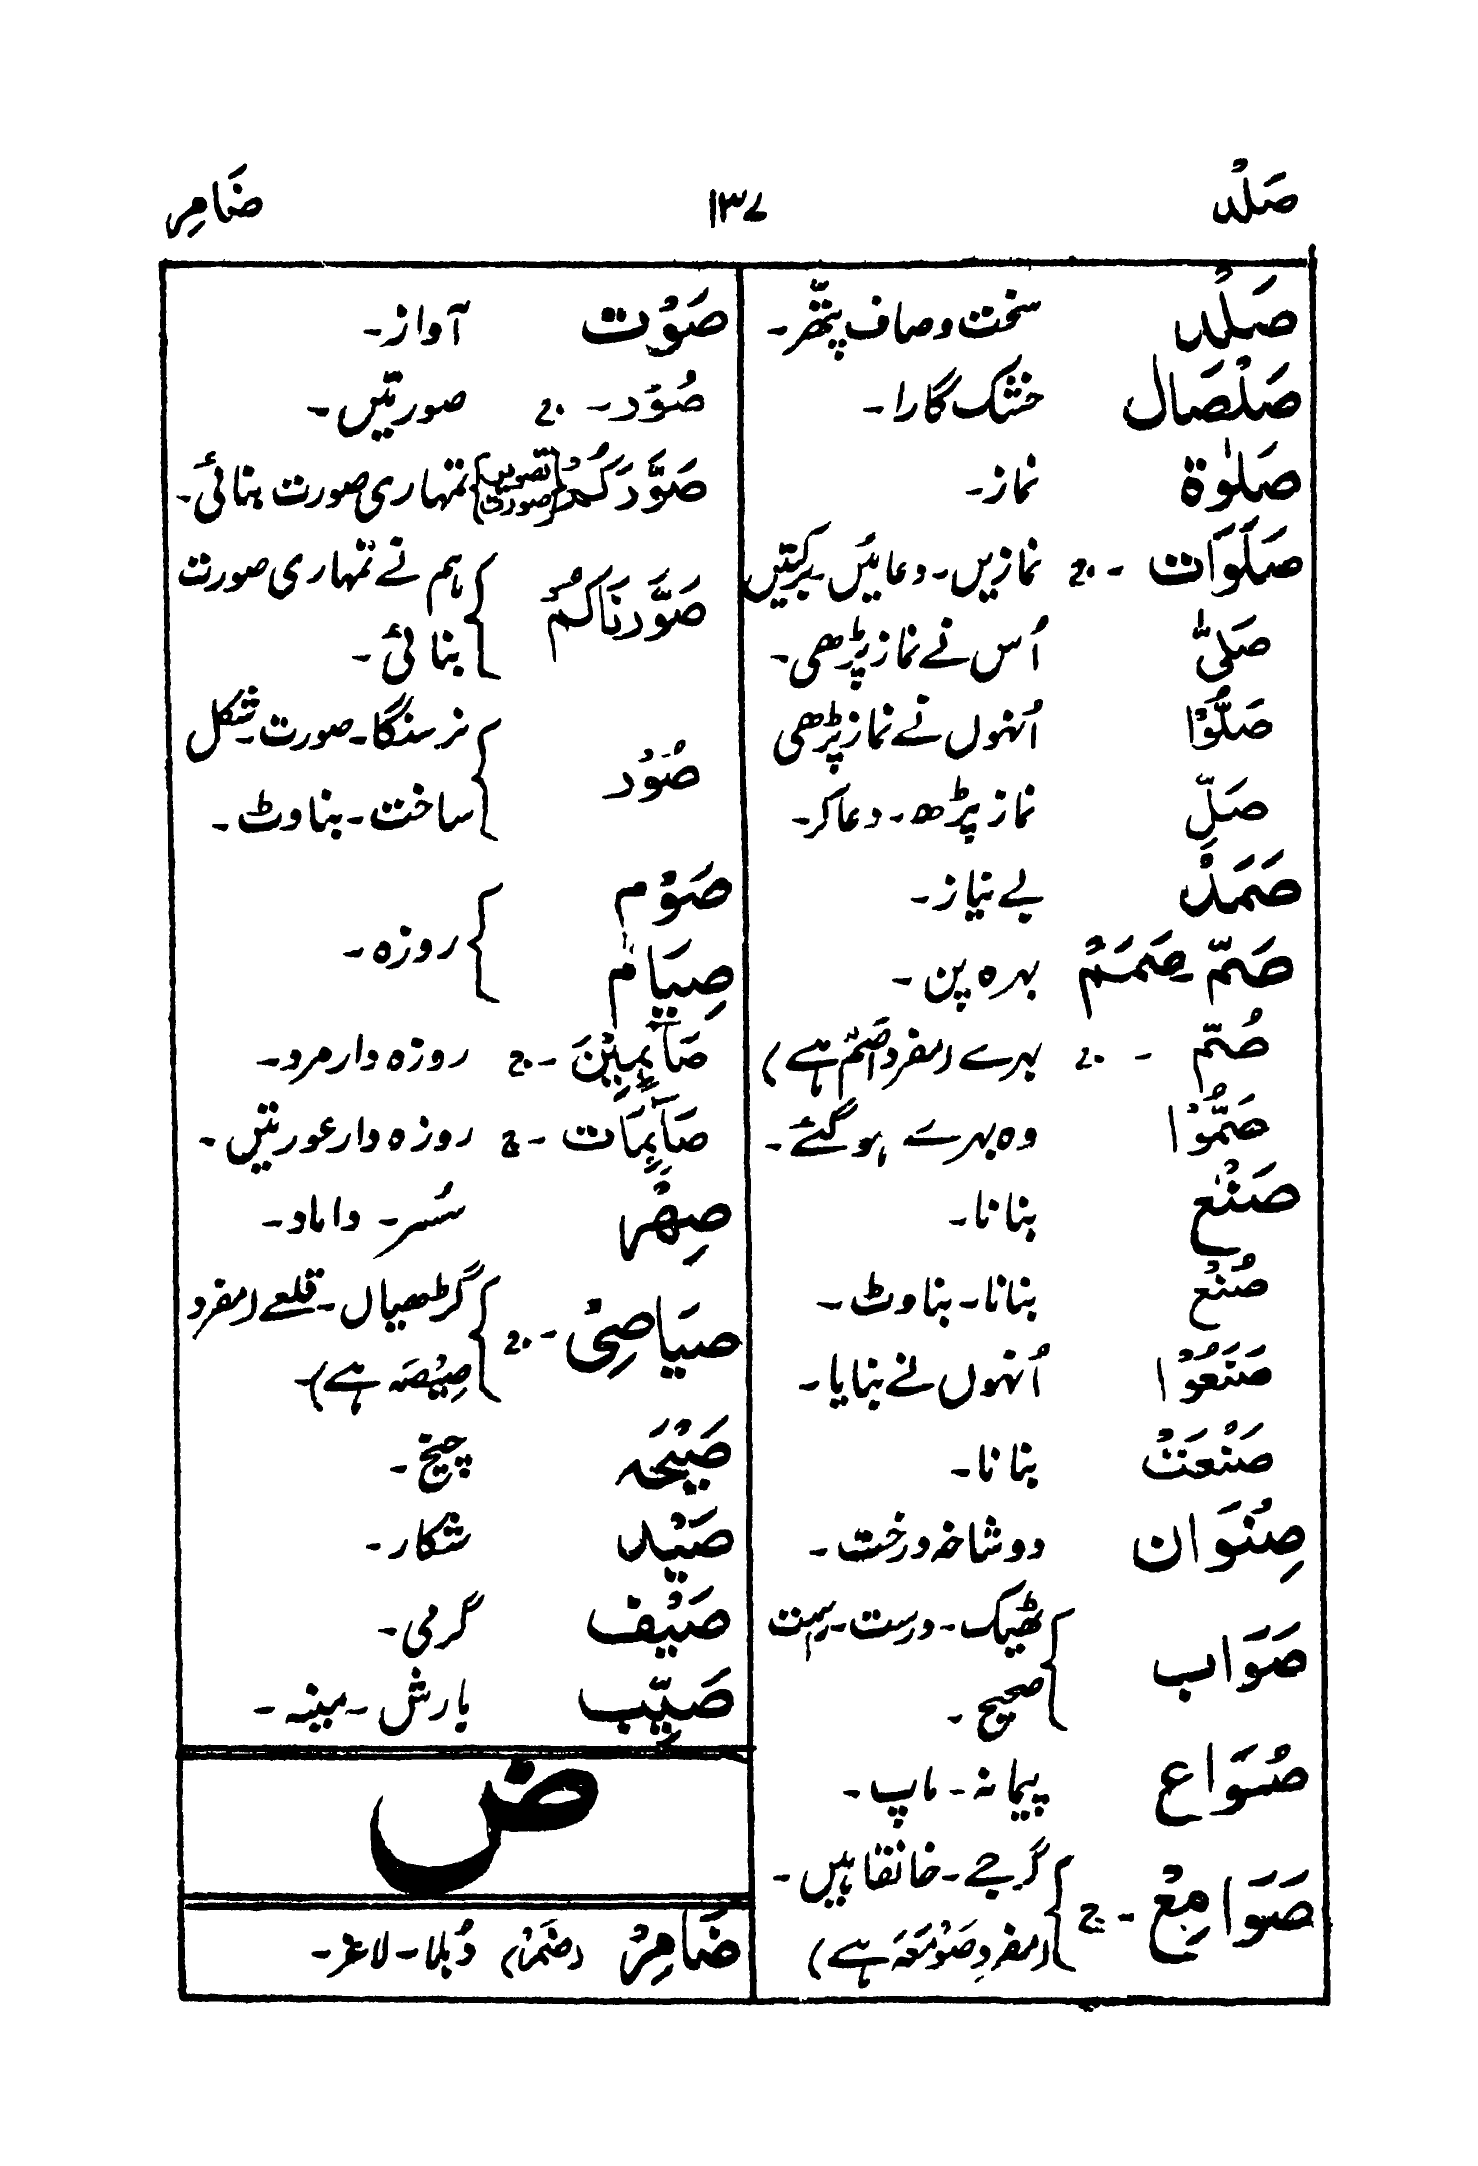 صَلْد ۱۳۷ ضَامِر
صَلْد سخت و صاف پتّھر۔
صَلْصَال خشک گارا۔
صَلٰوة نماز۔
صَلَوَات - ج نمازیں۔ دعائیں۔ برکتیں
صَلّٰى اُس نے نماز پڑھی۔
صَلَّوْا اُنہوں نے نماز پڑھی
صَلِّ نماز پڑھ۔ دعا کر۔
صَمَدْ بے نیاز۔
صَمّ صَمَمٌ بہرہ پن۔
صُمّ - ج بہرے (مفرد اَصَمّ ہے)
صَمُّوْا وہ بہرے ہو گئے۔
صَنْع بنانا۔
صُنْع بنانا۔ بناوٹ۔
صَنَعُوْا اُنہوں نے بنایا۔
صَنْعَتْ بنانا۔
صِنْوَان دو شاخہ درخت۔
صَوَاب ٹھیک۔ درست۔ راست
صحیح۔
صُوَاع پیمانہ۔ ماپ۔
صَوَامِعْ - ج گرجے۔ خانقاہیں۔
(مفرد صَوْمَعَہ ہے)
صَوْت آواز۔
صُوَر - ج صورتیں۔
صَوَّرَكُمْ {تصویر صورت} تمہاری صورت بنائی۔
صَوَّرْنَاكُمْ ہم نے تمہاری صورت
بنائی۔
صُوْر نرسنگا۔ صورت۔ شکل
ساخت۔ بناوٹ۔
صَوْم
صِيَامٌ روزہ۔
صَآئِمِيْنَ - ج روزہ دار مرد۔
صَآئِمَات - ج روزہ دار عورتیں۔
صِهْر سُسر۔ داماد۔
صَيَاصِىْ - ج گڑھیاں۔ قلعے (مفرد
صِيْصَہ ہے)۔
صَيْحَہ چیخ۔
صَيْد شکار۔
صَيْف گرمی۔
صَيِّب بارش۔ مینہ۔
ض
ضَامِرْ (ضَمْر) دُبلا۔ لاغر۔